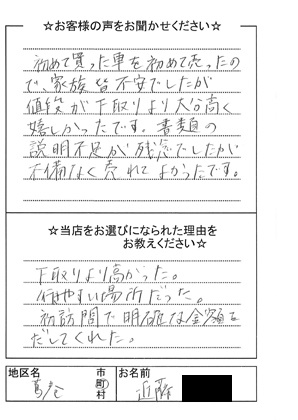 ☆お客様の声をお聞かせください☆
初めて買った車を初めて売ったの
で、家族皆不安でしたが
値段が下取りより大分高く
嬉しかったです。書類の
説明不足が残念でしたが
不備なく売れてよかったです。
☆当店をお選びになられた理由を
お教えください☆
下取りより高かった。
行きやすい場所だった。
初訪問で明確な金額を
だしてくれた。
地区名 市町村 お名前
近藤